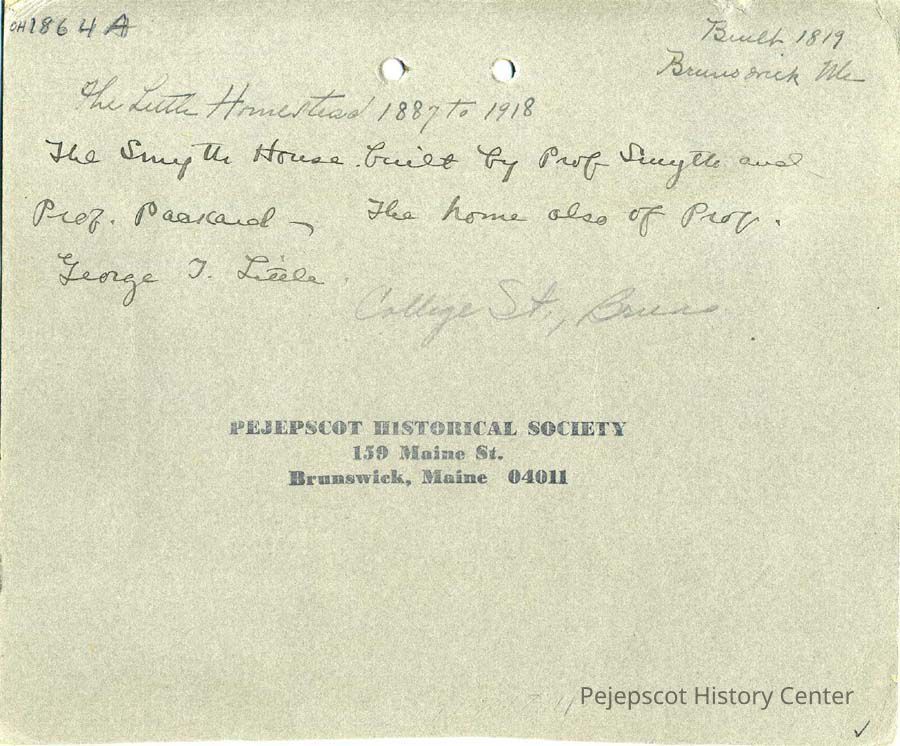 OH1864A
Built 1819
Brunswick Me
The Little Homestead 1887 to 1918
The Smyth House built by Prof Smyth and
Prof. Packard – The home also of Prof.
George T. Little.
College St., Bruns
PEJEPSCOT HISTORICAL SOCIETY
159 Maine St.
Brunswick, Maine 04011
Pejepscot History Center